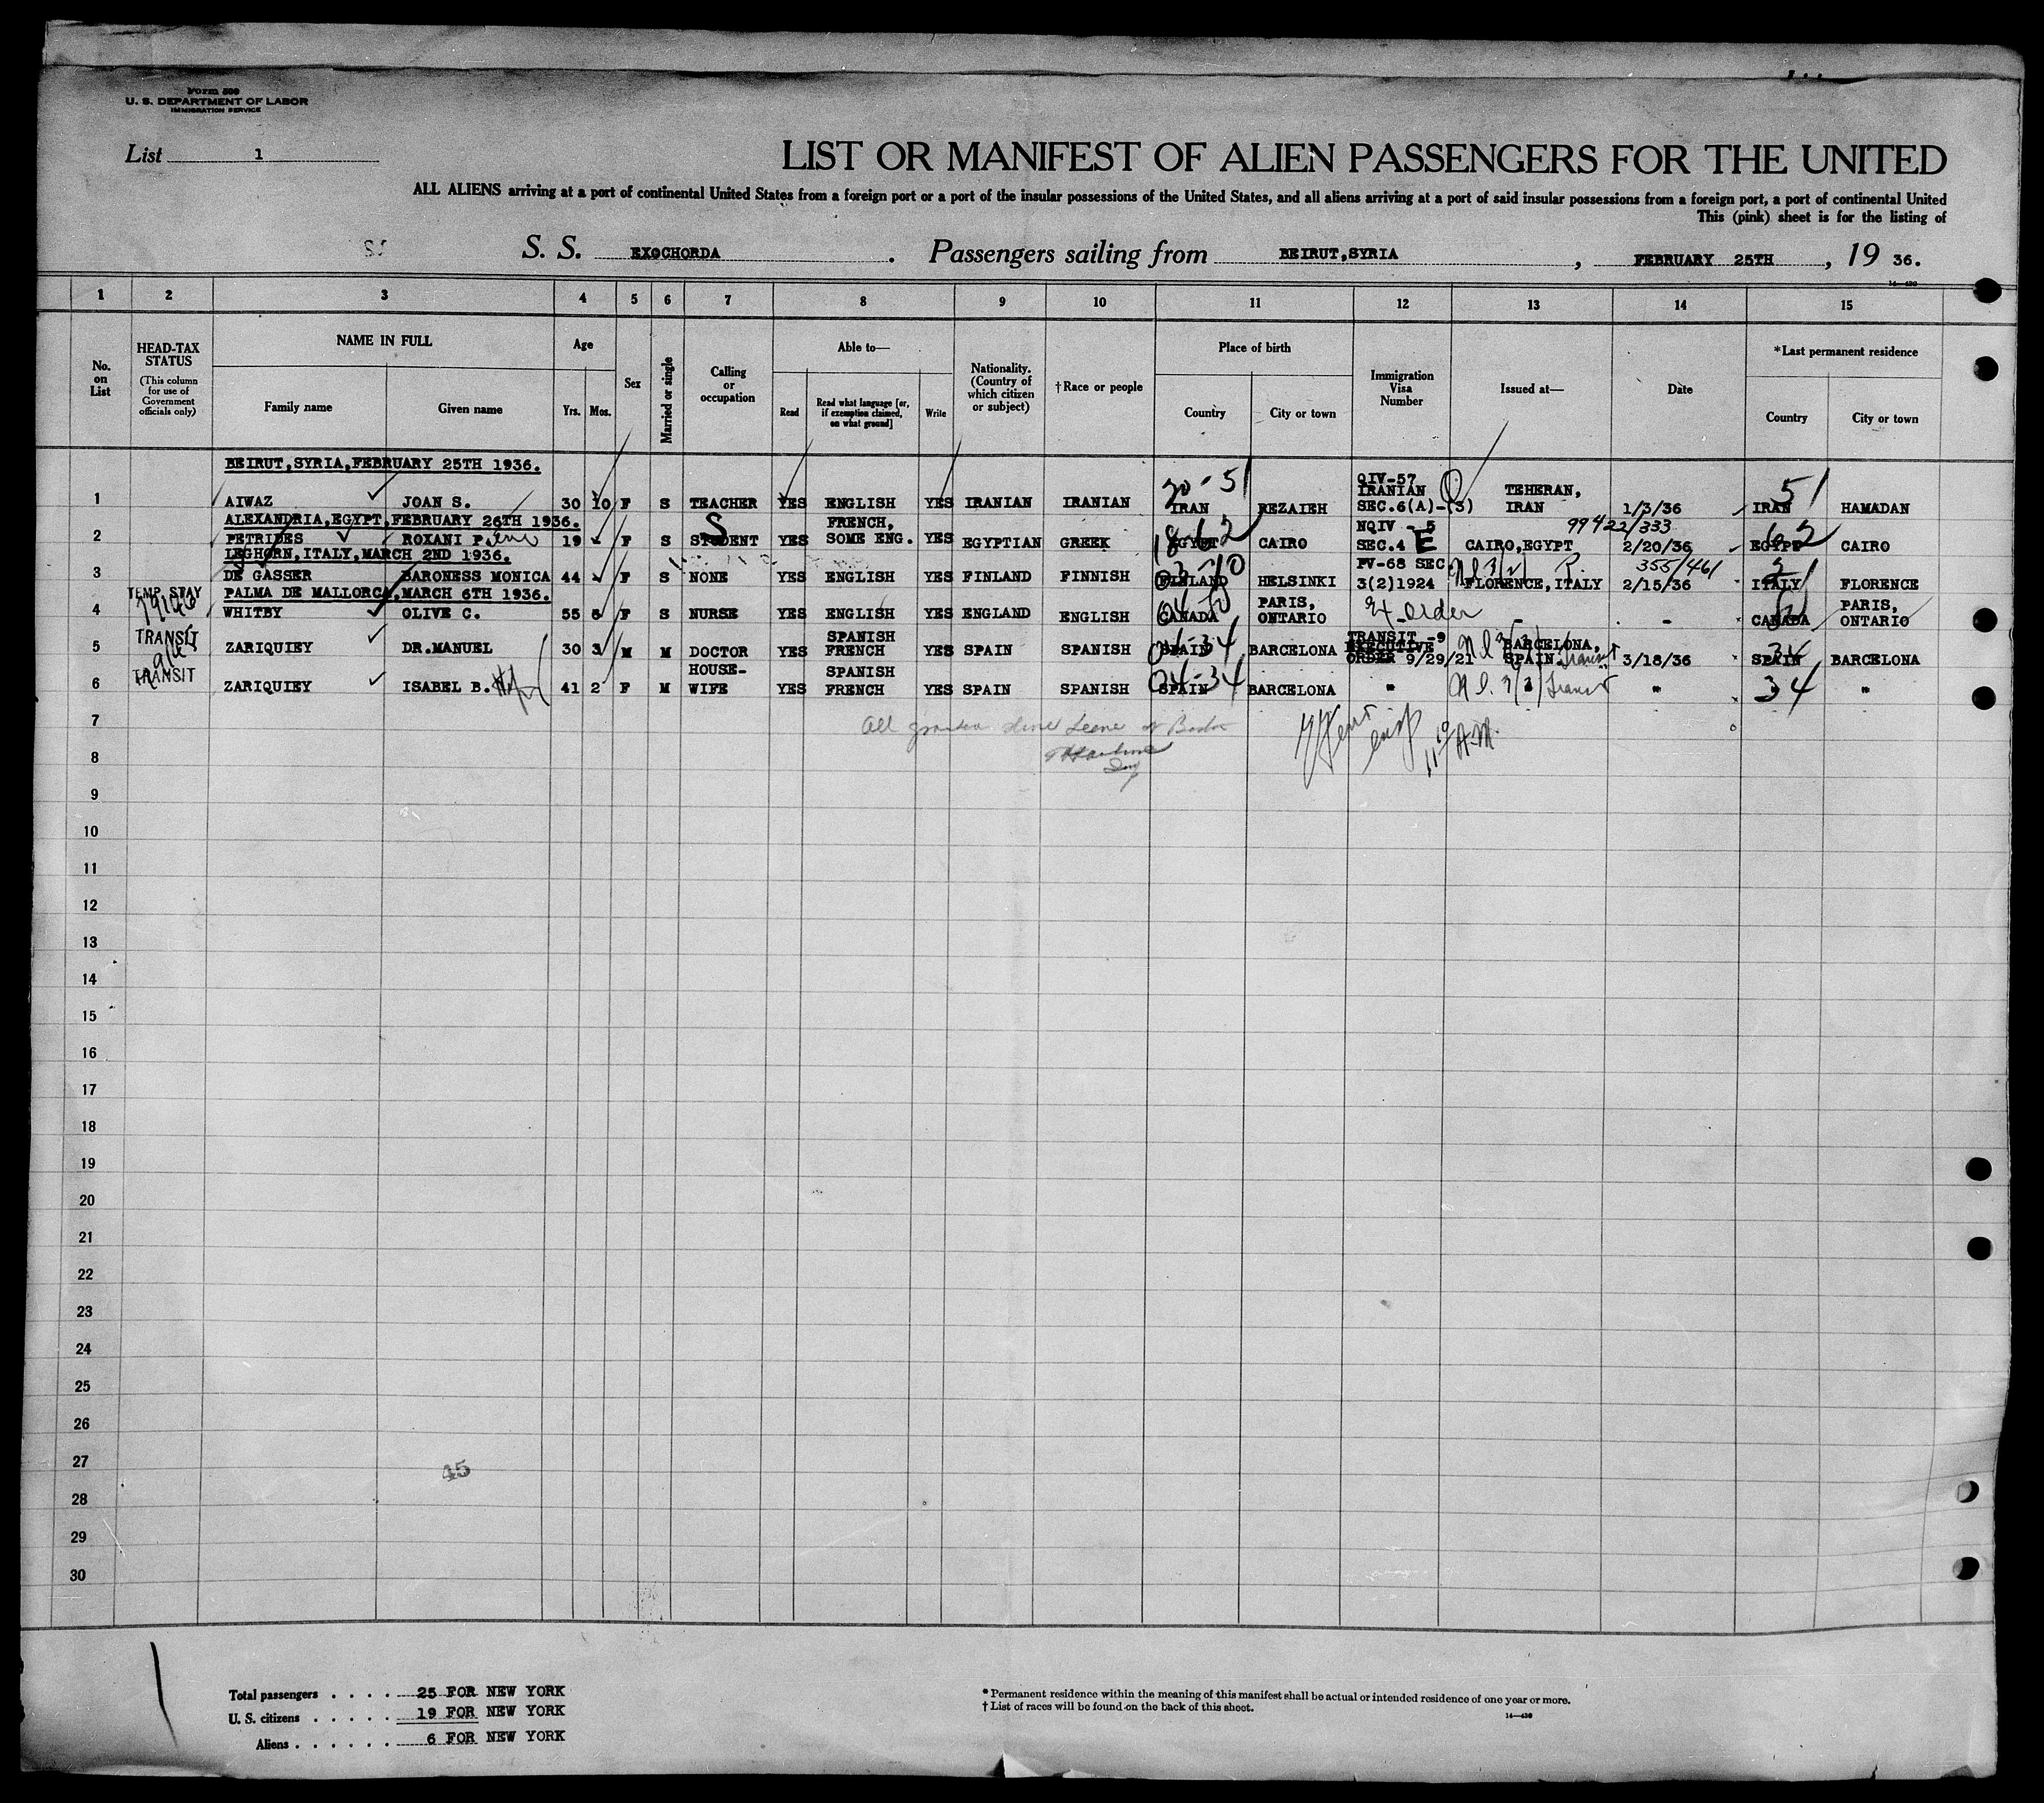 Form 500
U. S. DEPARTMENT OF LABOR
IMMIGRATION SERVICE
List 1
LIST OR MANIFEST OF ALIEN PASSENGERS FOR THE UNITED
ALL ALIENS arriving at a port of continental United States from a foreign port or a port of the insular possessions of the United States, and all aliens arriving at a port of said insular possessions from a foreign port, a port of continental United
This (pink) sheet is for the listing of
S. S. EXOCHORDA. Passengers sailing from BEIRUT,SYRIA, FEBRUARY 25TH, 19 36.
1 2 3 4 5 6 7 8 9 10 11 12 13 14 15
No. on List
HEAD-TAX STATUS
(This column for use of Government officials only)
NAME IN FULL
Family name Given name
Age
Yrs. Mos.
Sex
Married or single
Calling or occupation
Able to—
Read Read what language [or, if exemption claimed, on what ground] Write
Nationality. (Country of which citizen or subject)
†Race or people
Place of birth
Country City or town
Immigration Visa Number
Issued at—
Date
*Last permanent residence
Country City or town
BEIRUT,SYRIA,FEBRUARY 25TH 1936.
1 AIWAZ JOAN S. 30 10 F S TEACHER YES ENGLISH YES IRANIAN IRANIAN IRAN REZAIEH QIV-57 IRANIAN SEC.6(A)-(3) TEHERAN, IRAN 1/3/36 IRAN HAMADAN
20-51 51
ALEXANDRIA,EGYPT,FEBRUARY 26TH 1936.
2 PETRIDES ROXANI 19 F S STUDENT YES FRENCH, SOME ENG. YES EGYPTIAN GREEK EGYPT CAIRO NQIV - 5 SEC.4 E CAIRO,EGYPT 2/20/36 EGYPT CAIRO
S 18-62 99422/333 62
LEGHORN,ITALY,MARCH 2ND 1936.
3 DE GASSER BARONESS MONICA 44 F S NONE YES ENGLISH YES FINLAND FINNISH FINLAND HELSINKI PV-68 SEC 3(2)1924 FLORENCE,ITALY 2/15/36 ITALY FLORENCE
355/461
TEMP. STAY
PALMA DE MALLORCA,MARCH 6TH 1936.
4 WHITBY OLIVE C. 55 F S NURSE YES ENGLISH YES ENGLAND ENGLISH CANADA PARIS, ONTARIO Ex Order - - CANADA PARIS, ONTARIO
TRANSIT
5 ZARIQUIEY DR.MANUEL 30 3 M M DOCTOR YES SPANISH FRENCH YES SPAIN SPANISH SPAIN BARCELONA TRANSIT -9 EXECUTIVE ORDER 9/29/21 BARCELONA, SPAIN Transit 3/18/36 SPAIN BARCELONA
04-34 34
TRANSIT
6 ZARIQUIEY ISABEL B. 41 2 F M HOUSE-WIFE YES SPANISH FRENCH YES SPAIN SPANISH SPAIN BARCELONA " Transit " " "
04-34 34
7
All granted shore leave at Boston
11 10 A.M.
8
9
10
11
12
13
14
15
16
17
18
19
20
21
22
23
24
25
26
27
45
28
29
30
Total passengers . . . . 25 FOR NEW YORK
U. S. citizens . . . . . 19 FOR NEW YORK
Aliens . . . . . . 6 FOR NEW YORK
* Permanent residence within the meaning of this manifest shall be actual or intended residence of one year or more.
† List of races will be found on the back of this sheet.
14—430